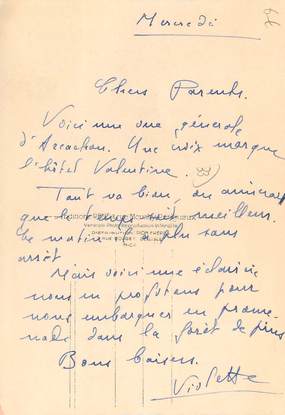 Mercredi
Chers Parents.
Voici une vue générale
d'Arcachon. Une croix marque
l'hôtel Valentine.
Tout va bien, on aimerait
que le temps soit meilleur.
Ce matin, la plu sans
arrêt
Mais voici une éclaircie
nous en profitons pour
nous embarquer en prome-
nade dans la forêt de pins
Bons baisers.
Violette